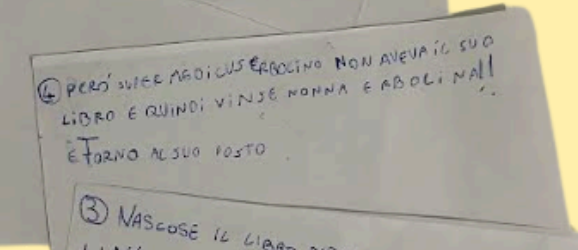 ④ PERÒ SUPER MEDICUS ERBOLINO NON AVEVA IL SUO
LIBRO E QUINDI VINSE NONNA ERBOLINA!!
E TORNO AL SUO POSTO
③ NASCOSE IL LIBRO